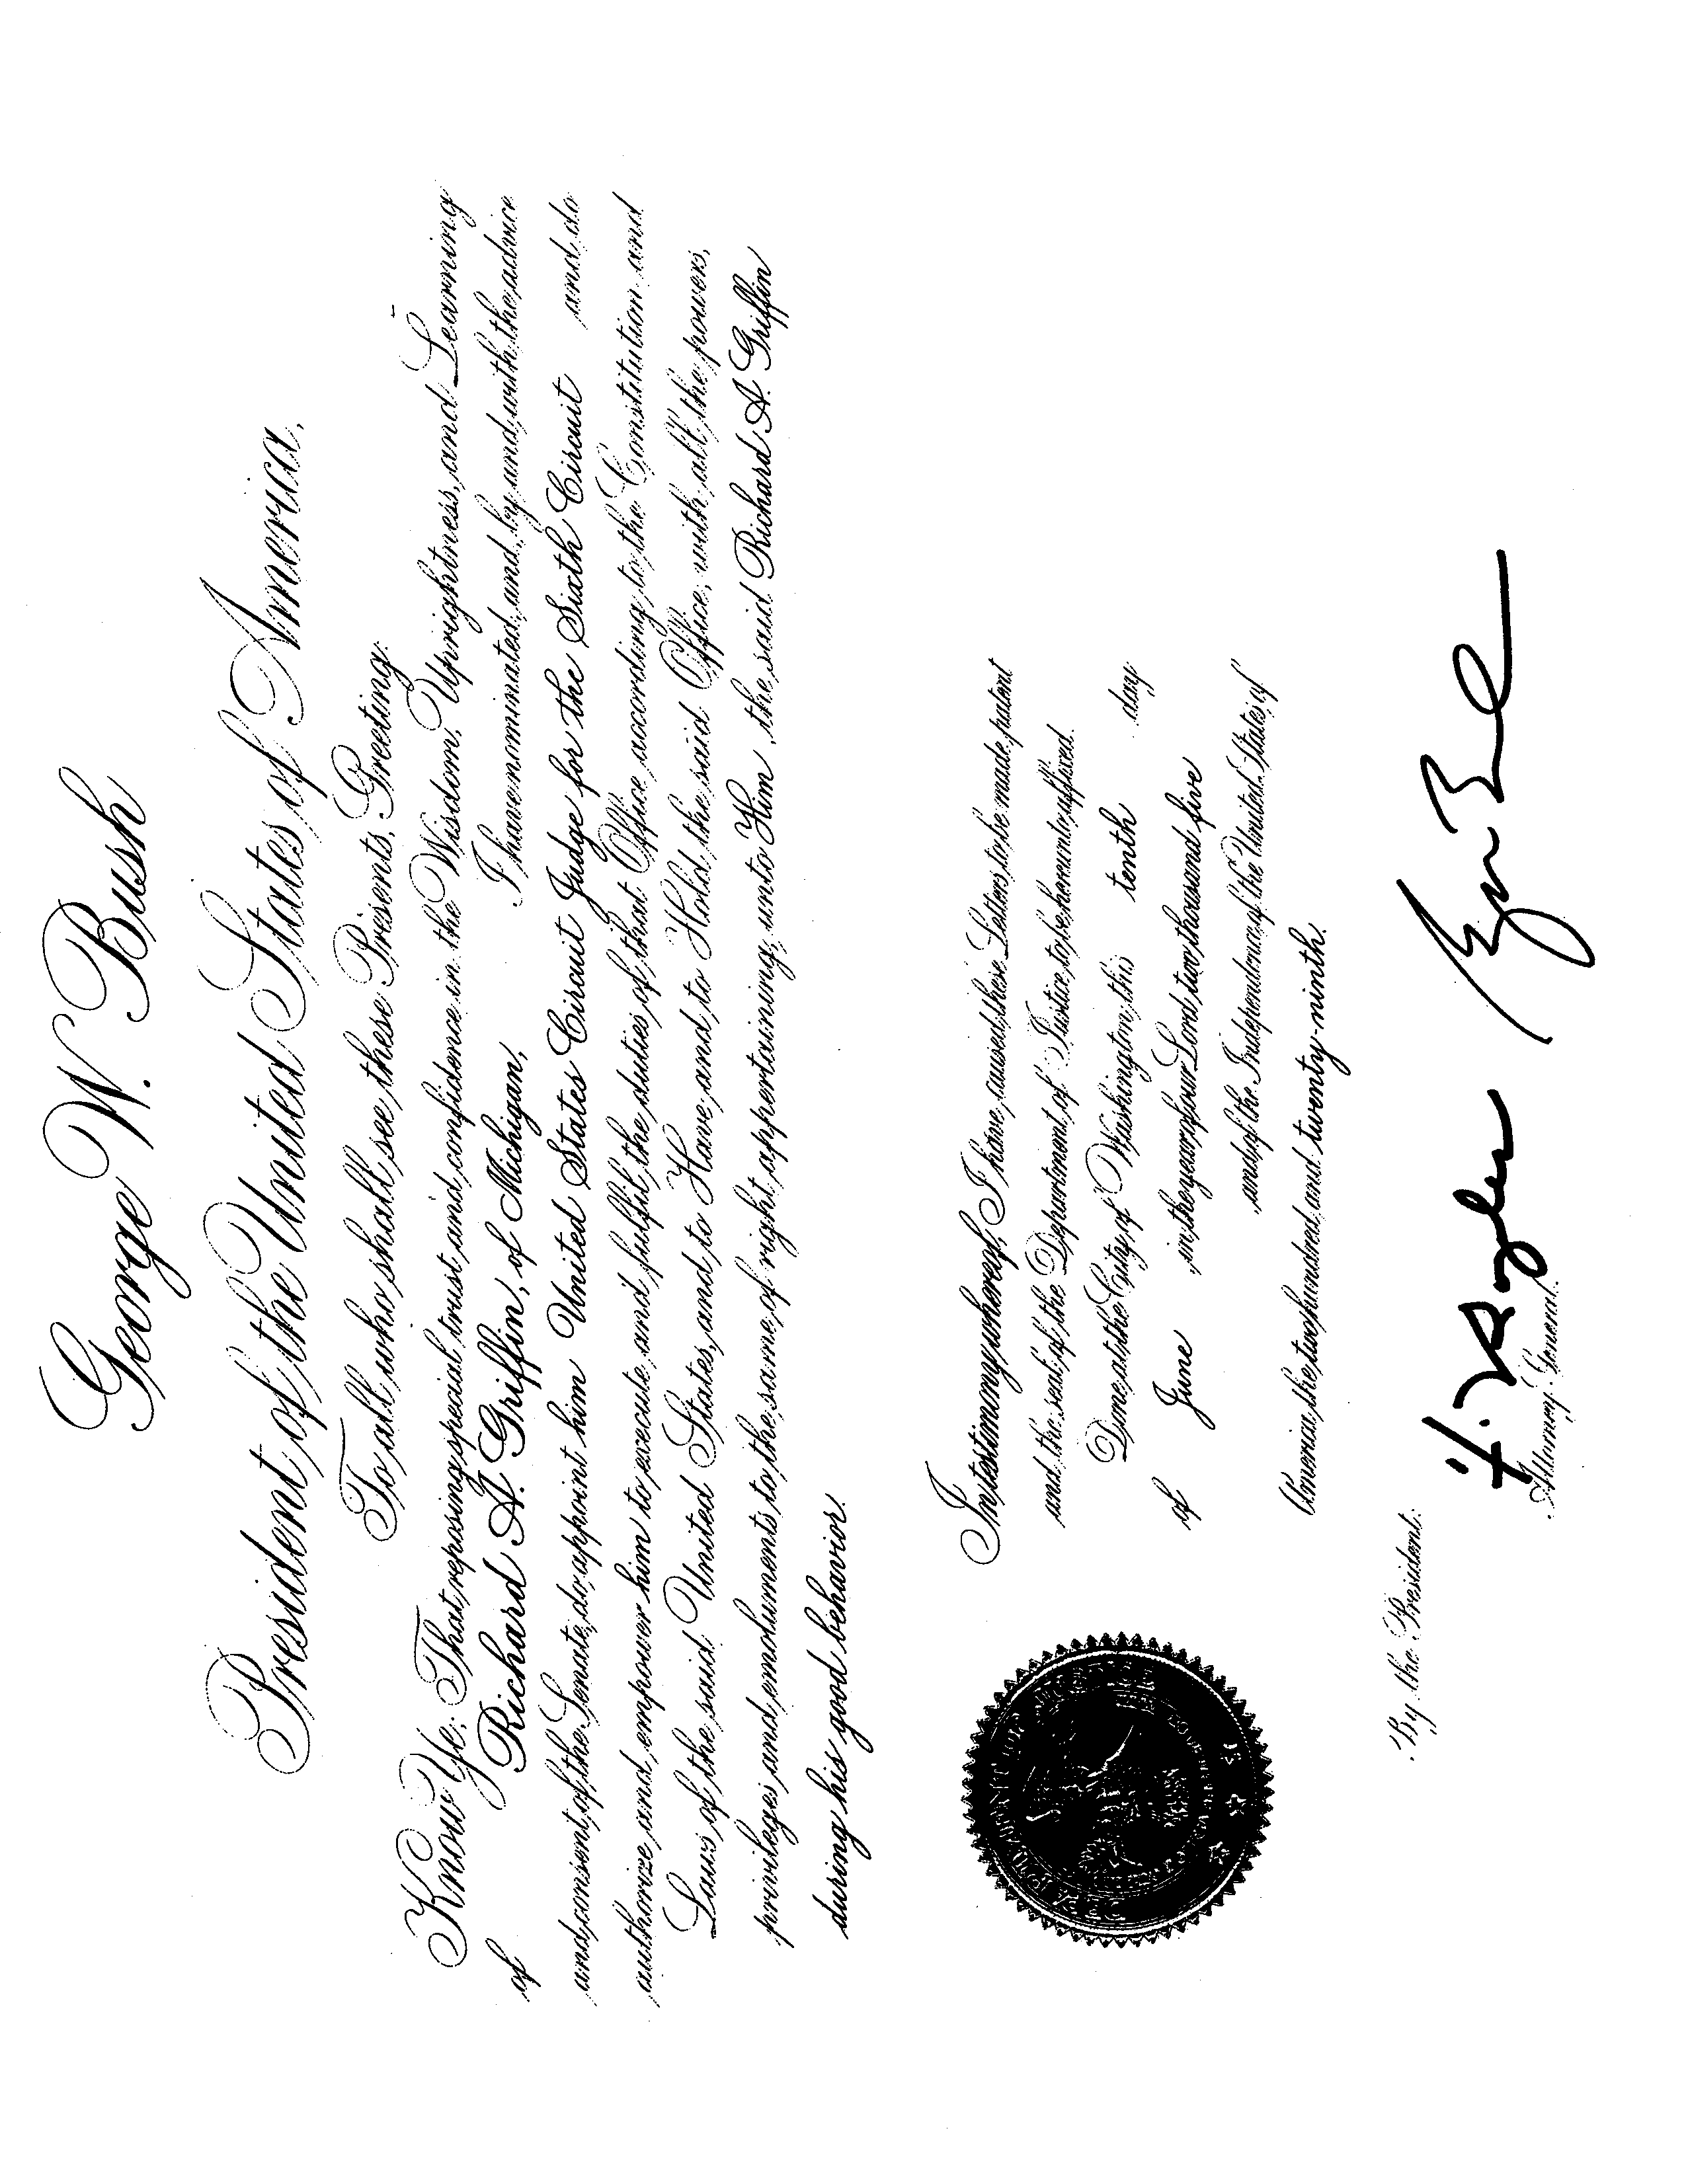 George W. Bush
President of the United States of America,
To all who shall see these Presents, Greeting:
Know Ye; That reposing special trust and confidence in the Wisdom, Uprightness, and Learning
of Richard A. Griffin, of Michigan, I have nominated, and, by and with the advice
and consent of the Senate, do appoint him United States Circuit Judge for the Sixth Circuit and do
authorize and empower him to execute and fulfil the duties of that Office according to the Constitution and
Laws of the said United States, and to Have and to Hold the said Office, with all the powers,
privileges and emoluments to the same of right appertaining, unto Him, the said Richard A. Griffin
during his good behavior.
In testimony whereof, I have caused these Letters to be made patent
and the seal of the Department of Justice to be hereunto affixed.
Done at the City of Washington, this tenth day
of June in the year of our Lord two thousand five
and of the Independence of the United States of
America the two hundred and twenty-ninth.
By the President:
Attorney General.